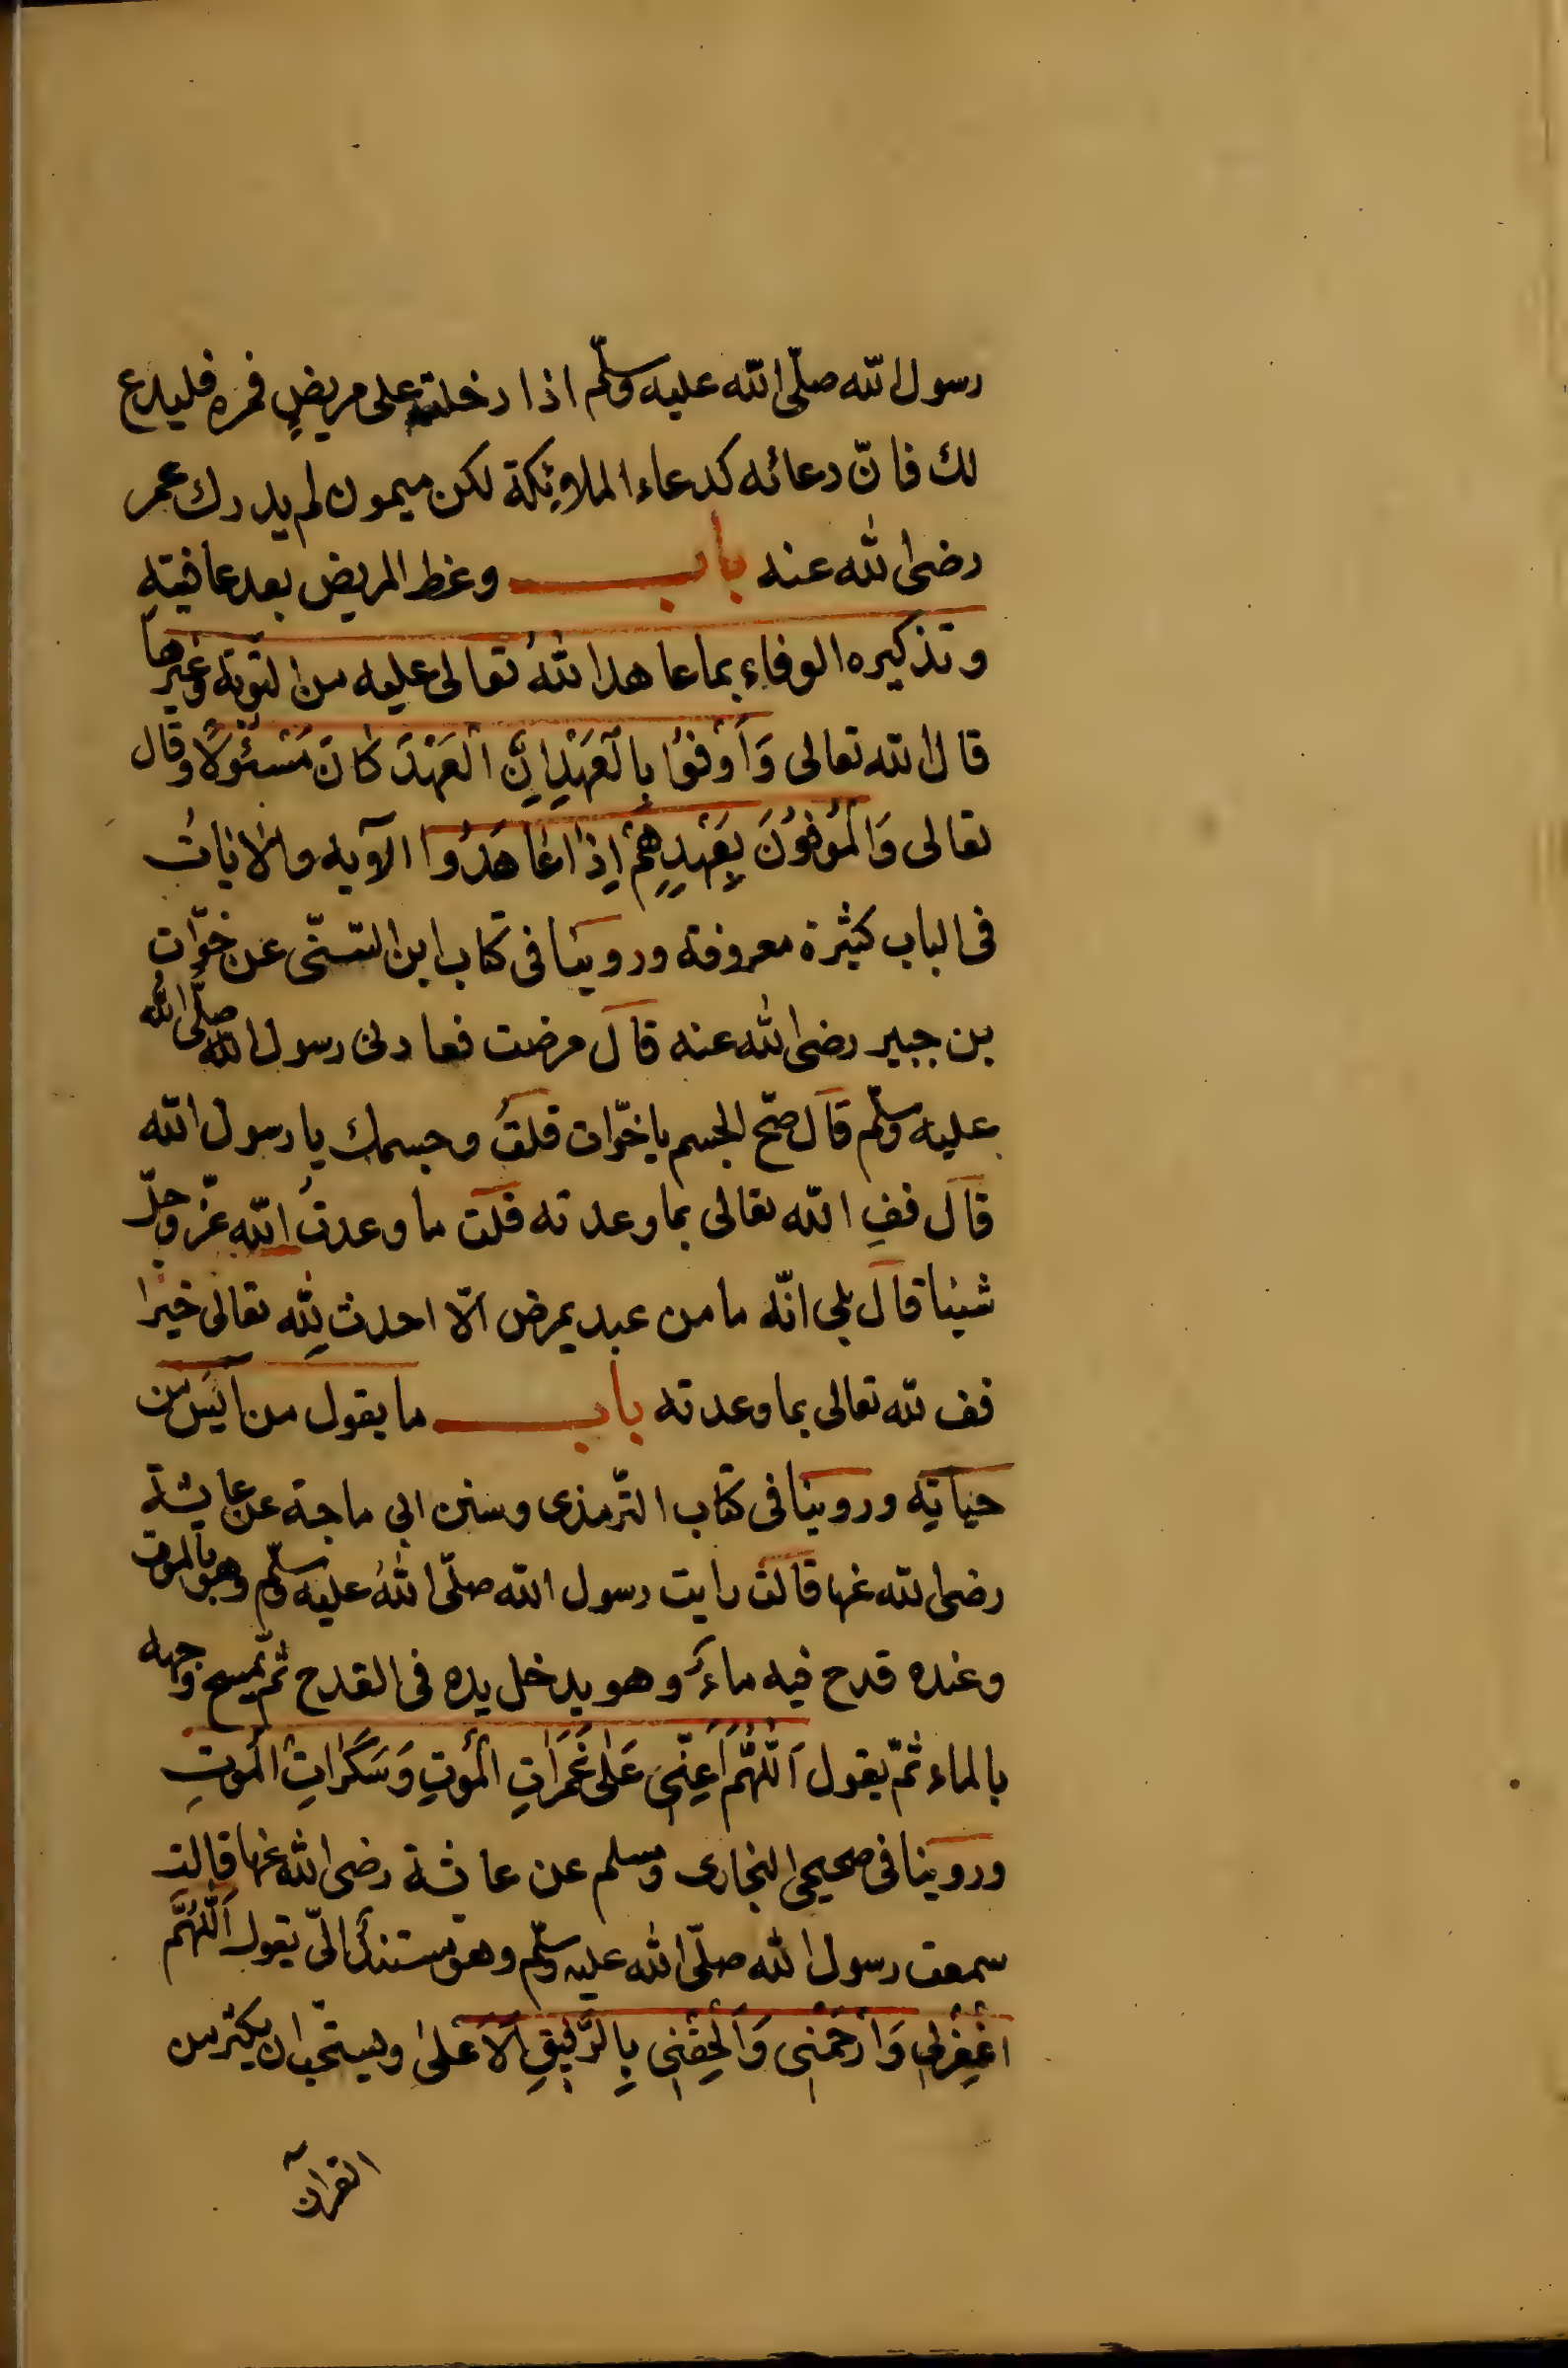 رسول الله صلّى الله عليه وسلّم اذا دخلت على مريضٍ فمره فليدع
لك فانّ دعائه كدعاء الملائِكة لكن ميمون لم يدرك عمر
رضى الله عنه باب وعظ المريض بعد عافيته
وتذكيره الوفاء بما عاهد اللهُ تعالى عليه من التّوبة وغيرها
قال الله تعالى وَاَوْفُوا بِالْعَهْدِ اِنَّ الْعَهْدَ كانَ مَسْئُولًا وقال
تعالى وَالْمُوفُونَ بِعَهْدِهِمْ اِذا عٰاهَدُوا الآويه والاياتُ
فى الباب كثيرة معروفة وروينا فى كتاب ابن السّنّى عن خوّات
بن جبير رضى الله عنه قال مرضت فعادنى رسول الله صلّى الله
عليه وسلّم قال صحّ الجسم يا خوّات قلتُ وجسمك يا رسول الله
قال ففِ الله تعالى بما وعدته قلت ما وعدتُ الله عزّ وجلّ
شيئا قال بلى انّه ما من عبد يمرض الّا احدث لِله تعالى خيرًا
فف لله تعالى بما وعدته باب ما يقول من آيس من
حياته وروينا فى كتاب التّرمذى وسنن ابى ماجة عن عايشة
رضى الله عنها قالت رايت رسول الله صلّى اللهُ عليه وسلّم وهو بالموت
وعنده قدح فيه ماءٌ وهو يدخل يده فى القدح ثمّ يمسح وجهه
بالماء ثمّ يقول اَللّهُمَّ اَعِنّى عَلىٰ غَمَراتِ الْمَوْتِ وَسَكَراتِ الْمَوتِ
وروينا فى صحيحى البخارى ومسلم عن عائشة رضى الله عنها قالت
سمعت رسول الله صلّى الله عليه وسلّم وهو مستند الىّ يقول اَللّهُمَّ
اغْفِرْلى وَارْحَمْنى وَاَلْحِقْنى بِالرَّفيقِ الْاَعْلىٰ ويستحبّ ان يكثر من
القرآن